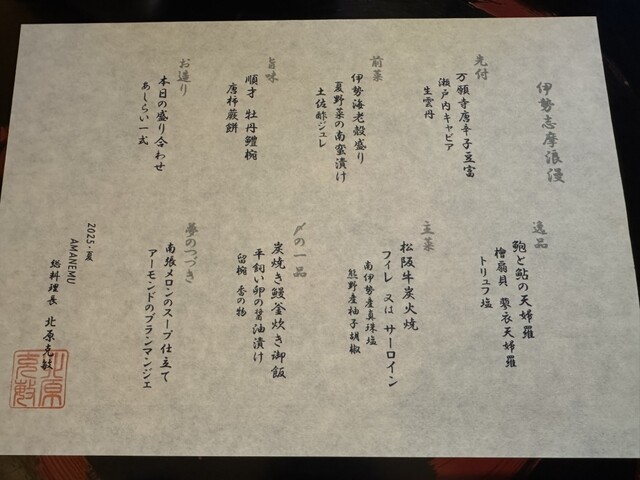 伊勢志摩浪漫
先付
万願寺唐辛子豆富
瀬戸内キャビア
生雲丹
前菜
伊勢海老殻盛り
夏野菜の南蛮漬け
土佐酢ジュレ
旨味
順才 牡丹鱧椀
唐柿蕨餅
お造り
本日の盛り合わせ
あしらい一式
逸品
鮑と鮎の天婦羅
檜扇貝 蓼衣天婦羅
トリュフ塩
主菜
松阪牛炭火焼
フィレ 又は サーロイン
南伊勢産真珠塩
熊野産柚子胡椒
〆の一品
炭焼き鰻釜炊き御飯
平飼い卵の醤油漬け
留椀 香の物
夢のつづき
南張メロンのスープ仕立て
アーモンドのブランマンジェ
2025・夏
AMANEMU
総料理長 北原克敏